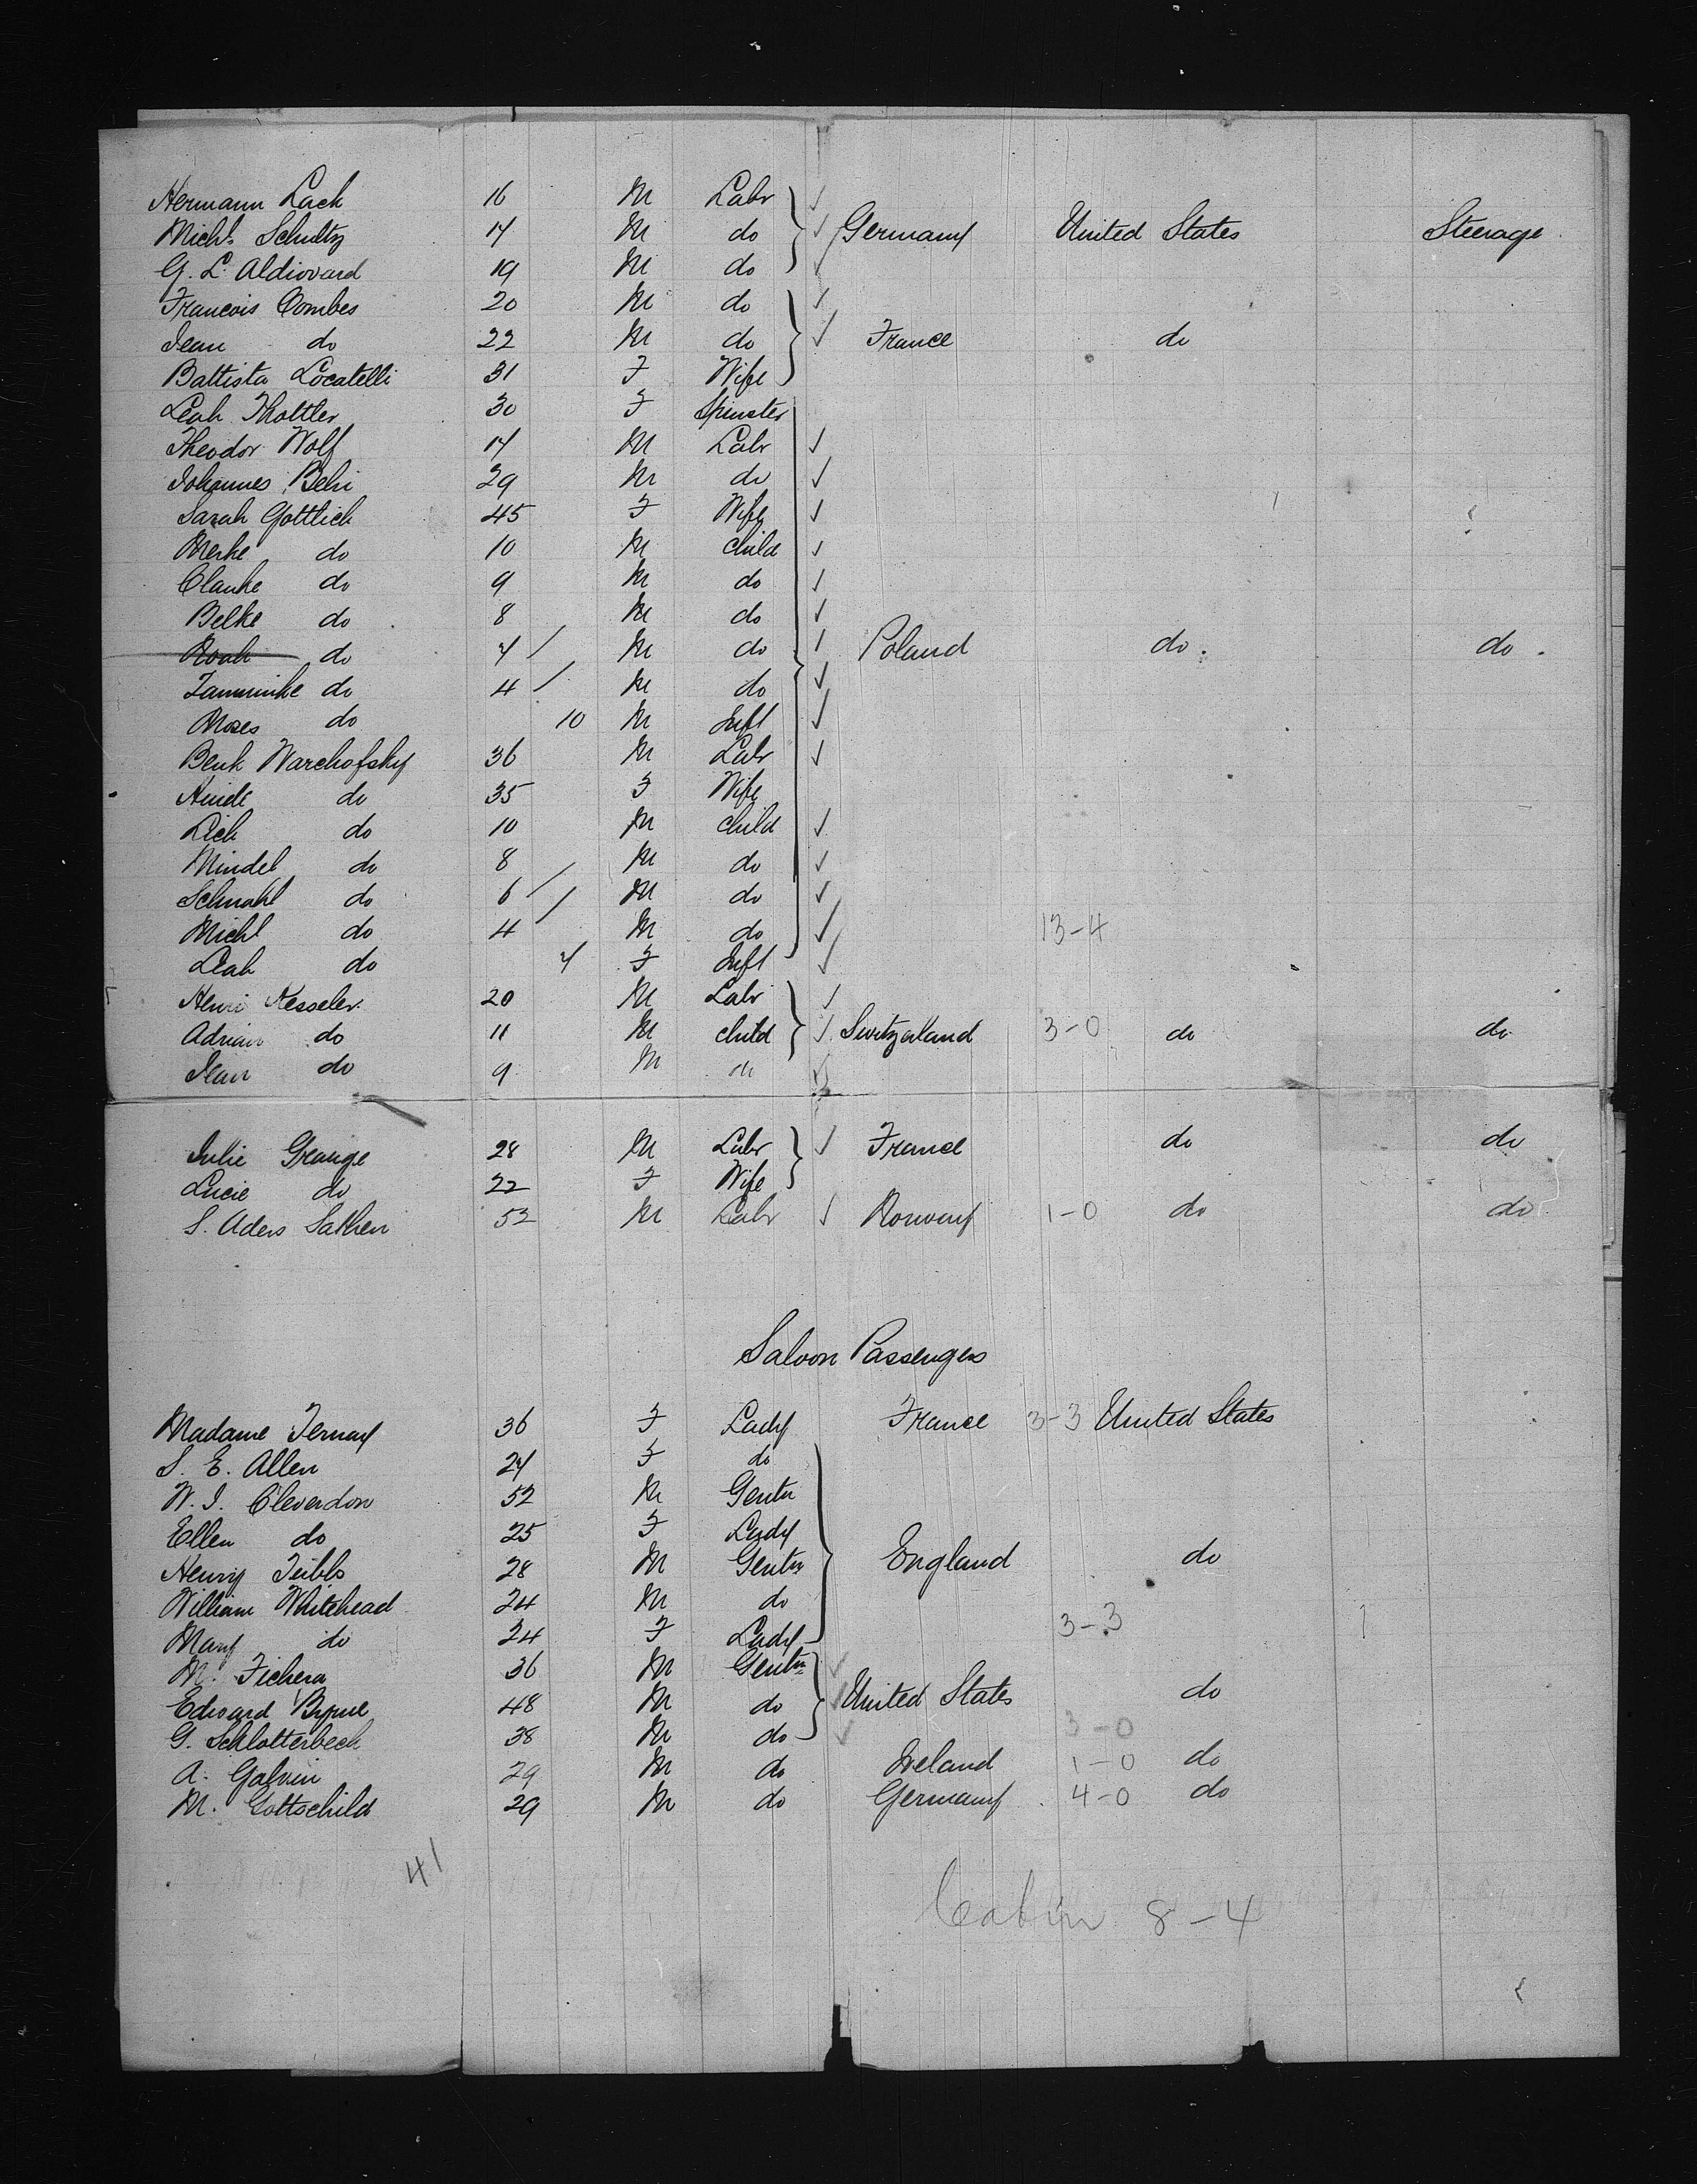 Hermann Lach 16 M Labr
Michl Schultz 17 M do Germany United States Steerage
G. L. Aldiovard 19 M do
Francois Combes 20 M do
Jean do 22 M do France do
Battista Locatelli 31 F Wife
Leah Thottler 30 F Spinster
Theodor Wolf 17 M Labr
Johannes Behi 29 M do
Sarah Gottlieb 45 F Wife
Merke do 10 M child
Clauke do 9 M do
Belke do 8 M do
Noah do 7 M do Poland do. do.
Jamminke do 4 M do
Moses do 10 M Inft
Benk Warchofsky 36 M Labr
Hinde do 35 F Wife
Lieb do 10 M child
Mindel do 8 M do
Schmahl do 6 M do
Michl do 4 M do 13-4
Leah do 7 F Inft
Henri Kesseler 20 M Labr
Adrian do 11 M child Switzerland 3-0 do do
Jean do 9 M do
Julie Grange 28 M Labr France do do
Lucie do 22 F Wife
S. Aders Sathen 52 M Labr Norway 1-0 do do
Saloon Passengers
Madame Ternay 36 F Lady France 3-3 United States
S. E. Allen 27 F do
W. J. Cleverdon 52 M Gentn
Ellen do 25 F Lady
Henry Tibbs 28 M Gentn England do
William Whitehead 24 M do
Mary do 24 F Lady 3-3
M. Fichera 36 M Gentn
Edward Byrne 48 M do United States do
G. Schlotterbeck 38 M do 3-0
A. Galvin 29 M do Ireland 1-0 do
M. Gottschild 29 M do Germany 4-0 do
41
Cabin 8-4